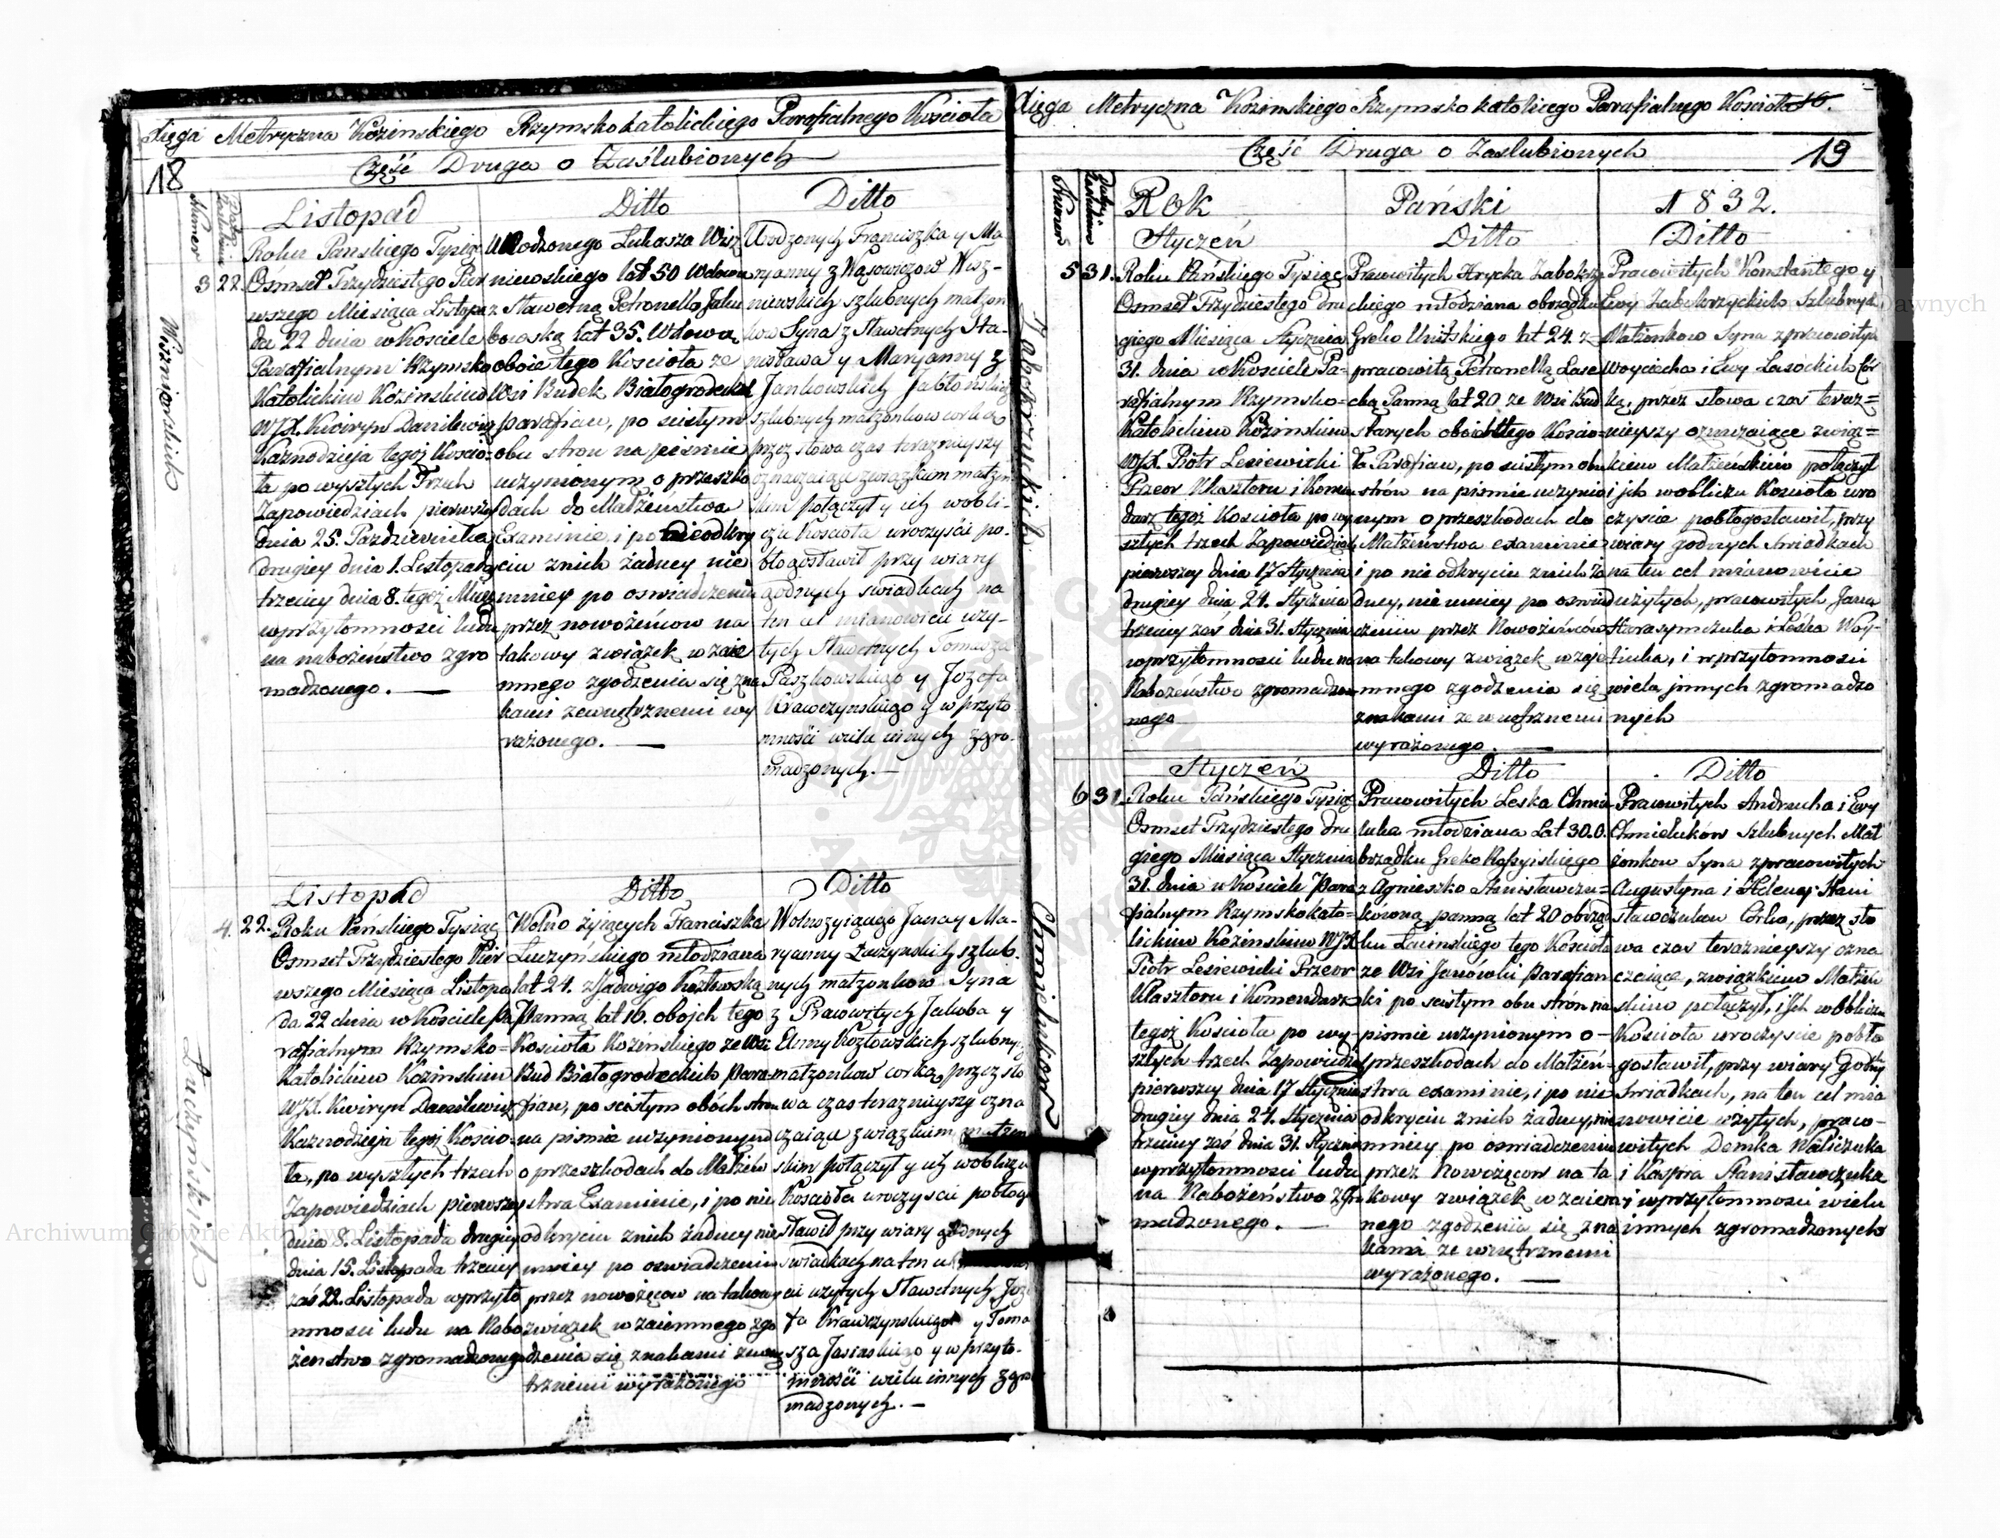 Xięga Metryczna Kozinskiego Rzymsko katolickiego Parafialnego Kościoła
Część Druga o Zaślubionych
18
Numer
Listopad
Roku Pańskiego Tysiąc
3 22. Osmset Trzydziestego Pier
wszego Miesiąca Listopa
da 22 dnia w Kosciele
Parafialnym Rzymsko
Katolickim Kozinskim
WJX. Kwiryn Danilewicz
Kaznodzieja tegoż Kościo-
ła po wyszłych Trzech
Zapowiedziach pierwszy
dnia 25. Pazdziernika
drugiey dnia 1. Listopada
trzeciey dnia 8. tegoż Mies
w przytomnosci ludu
na nabożeństwo zgro
madzonego. —
Ditto
Urodzonego Lukasza Wisz
niewskiego lat 50 Wdowca
z Sławetną Petronellą Jabło
lat 35. Wdową
oboie tego Kościoła ze
Wsi Budek Białogrodeckich
parafian, po scisłym
obu stron na piśmie
uczynionym o przeszko
dach do Małżeństwa
Examinie, i po nieodkry
ciu z nich żadney nie
mniey po oswiadczeniu
przez nowożeńcow na
takowy związek wzaie
mnego zgodzenia się zna
kami zewnętrznemi wy
rażonego. —
Ditto
Urodzonych Franciszka y Ma
ryanny z Wąsowiczow Wisz-
niewskich szlubnych małżon
kow Syna z Sławetnych Sta-
nisława y Maryanny z
Jankowskich Jabłońskich
szlubnych małżonkow corką
przez słowa czas teraznieyszy
oznaczaiące związkiem małżeń
skim połączył y ich wobli-
czu Kościoła uroczyście po-
błogosławił przy wiary
godnych swiadkach na
ten cel mianowicie uży-
tych Sławetnych Tomasza
Paszkowskiego y Jozefa
Krawczynskiego y w przyto
mności wielu innych zgro-
madzonych. —
Wiszniewskich
Listopad
4. 22. Roku Pańskiego Tysiąc
Osmset Trzydziestego Pier
wszego Miesiąca Listopa
da 22 dnia w Kosciele Pa
rafialnym Rzymsko-
Katolickim Kozinskim
WJX. Kwiryn Danilewicz
Kaznodzieja tegoż Kościo-
ła, po wyszłych trzech
Zapowiedziach pierwszey
dnia 8. Listopada drugiey
dnia 15. Listopada trzeciey
zaś 22. Listopada w przyto
mnosci ludu na Nabo
żeństwo zgromadzonego
Ditto
Wolno żyiących Franciszka
Luczyńskiego młodziana
lat 24. z Jadwigą Kozłowską
Panną lat 16. obojch tego
Kościoła Kozińskiego ze Wsi
Bud Białogrodzeckich para-
fian, po scisłym obóch stron
na piśmie uczynionym
o przeszkodach do Małżeń
stwa Examinie, i po nie
odkryciu z nich żadney nie
mniey po oswiadczeniu
przez nowożęcow na takowy
związek wzaiemnego zgo
dzenia się znakami zewnę
trznemi wyrażonego
Ditto
Wolnożyiącego Jana y Ma-
ryanny Luczynskich szlub-
nych małżonkow Syna
z Pracowitych Jakoba y
Anny Kozłowskich szlubnych
małżonkow corką, przez sło
wa czas teraznieyszy ozna
czaiące związkiem małżeń
skim połączył y ich wobliczu
Kościoła uroczyście pobłogo
sławił przy wiary godnych
swiadkach na ten cel
użytych Sławetnych Józe
fa Krawczynskiego y Toma
sza Jasinskiego y w przyto-
mności wielu innych zgro
madzonych. —
Luczyńskich
Xięga Metryczna Kozinskiego Rzymsko katolicego Parafialnego Kościoła
Część Druga o Zaslubionych
19
Numer
Rok Pański 1832.
Styczeń
5 31. Roku Pańskiego Tysiąc
Osmset Trzydziestego dru
giego Miesiąca Stycznia
31. dnia w Kościele Pa-
rafialnym Rzymsko-
Katolickim Kozinskim
WJX. Piotr Lesiewicki
Przeor Klasztoru i Komen
darz tegoż Kościoła po wy
szłych trzech Zapowiedziach
pierwszey dnia 17 Stycznia
drugiey dnia 24. Stycznia
trzeciey zaś dnia 31. Stycznia
w przytomnosci ludu na
Nabożeństwo zgromadzo
nego
Ditto
Pracowitych Hrycka Zabokrzy
ckiego młodziana obrządku
Greko Unitskiego lat 24. z
pracowitą Petronellą Laso
cką Panną lat 20 ze Wsi Bud
starych oboie tego Kościo-
ła Parafian, po scisłym obu
strón na pismie uczynio
nym o przeszkodach do
Małżeństwa examinie
i po nie odkryciu z nich ża
dney, nie mniey po oswiad
czeniu przez Nowożeńców
na takowy związek wzaje
mnego zgodzenia się
znakami ze wnętrznemi
wyrażonego. —
Ditto
Pracowitych Konstantego y
Ewy Zabokrzyckich Szlubnych
Małżonkow Syna z pracowitych
Woyciecha i Ewy Lasockich Cór
ką, przez słowa czas teraz=
nieyszy oznaczaiące związ=
kiem Małżeńskim połączył
i jch wobliczu Kościoła uro
czyscie pobłogosławił, przy
wiary godnych Swiadkach
na ten cel mianowicie
użytych, pracowitych Jana
Harasymczuka i Leśka Woy-
tiuka, i w przytomnosci
wielu jnnych zgromadzo
nych
Zabokrzyckich
Styczeń
6 31. Roku Pańskiego Tysiąc
Osmset Trzydziestego dru
giego Miesiąca Stycznia
31. dnia w Kościele Para
fialnym Rzymskokato-
lickim Kozinskim WJX
Piotr Lesiewicki Przeor
Klasztoru i Komendarz
tegoż Kościoła po wy
szłych trzech Zapowiedziach
pierwszey dnia 17 Stycznia
drugiey dnia 24. Stycznia
trzeciey zaś dnia 31. Stycznia
w przytomnosci ludu
na Nabożeństwo zgro
madzonego. —
Ditto
Pracowitych Leska Chmie
luka młodziana Lat 30. o
brządku Greko Rossyiskiego
z Agnieszką Stanisławczu-
kówną panną lat 20 obrząd
ku Lacinskiego tego Kościoła
ze Wsi Janówki parafian
ki po scisłym obu stron na
piśmie uczynionym o-
przeszkodach do Małżeń-
stwa examinie, i po nie
odkryciu z nich żadney, nie
mniey po oswiadczeniu
przez Nowożęcow na ta
kowy związek wzaiem
nego zgodzenia się zna
kami ze wnętrznemi
wyrażonego. —
Ditto
Pracowitych Andrucha i Ewy
Chmieluków Szlubnych Mał
żonkow Syna z pracowitych
Augustyna i Heleny Stani
sławczukow Corką, przez sło
wa czas teraznieyszy ozna
czaiące, związkiem Małżeń
skim połączył, i Jch wobliczu
Kościoła uroczyscie pobło
gosławił, przy wiary Godnych
Swiadkach, na ten cel mia
nowicie użytych, praco-
witych Demka Waliczuka
i Kaspra Stanisławczuka
i w przytomnosci wielu
innych zgromadzonych
Chmielukow
Archiwum Główne Akt Dawnych